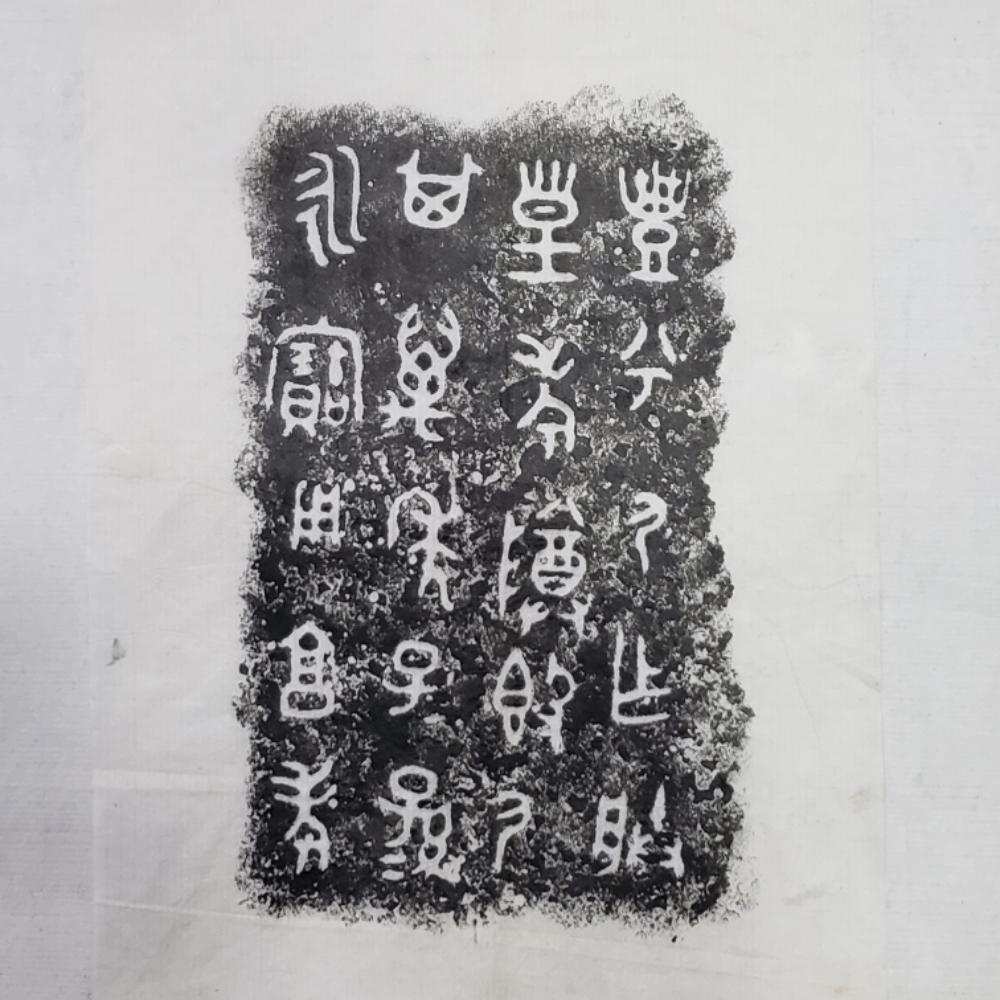 豐兮尸乍朕
皇考尊𣪘尸
其萬年子孫
永寶用享考